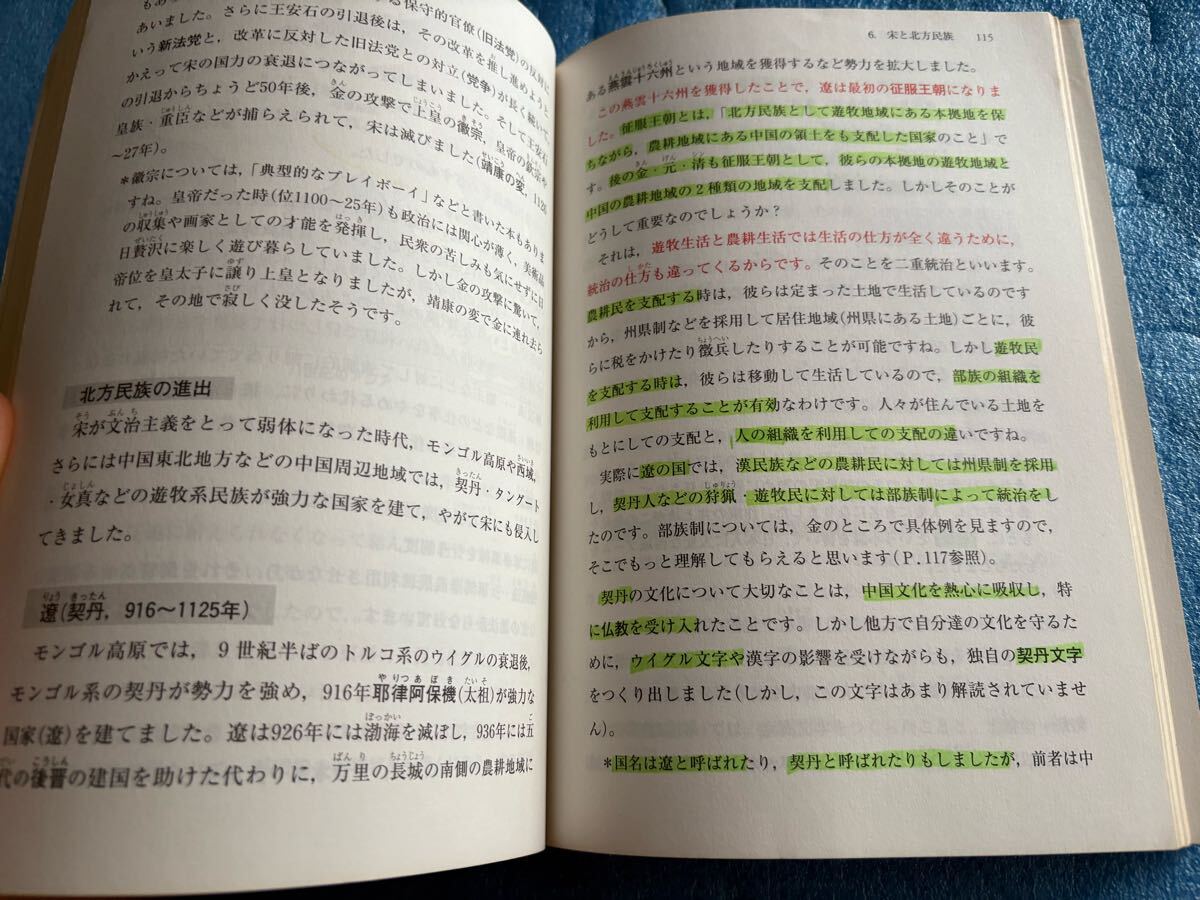 る保守的官僚(旧法党)の反対に
あいました。さらに王安石の引退後は，その改革を推し進めようと
いう新法党と，改革に反対した旧法党との対立(党争)が長く続いて，
かえって宋の国力の衰退につながってしまいました。そして王安石
の引退からちょうど50年後，金の攻撃で上皇の徽宗，皇帝の欽宗や
皇族・重臣などが捕らえられて，宋は滅びました(靖康の変，1126
～27年)。
*徽宗については，「典型的なプレイボーイ」などと書いた本もありま
すね。皇帝だった時(位1100～25年)も政治には関心が薄く，美術品
の収集や画家としての才能を発揮し，民衆の苦しみも気にせずに日
日贅沢に楽しく遊び暮らしていました。しかし金の攻撃に驚いて，
帝位を皇太子に譲り上皇となりましたが，靖康の変で金に連れ去ら
れて，その地で寂しく没したそうです。
北方民族の進出
宋が文治主義をとって弱体になった時代，モンゴル高原や西域，
さらには中国東北地方などの中国周辺地域では，契丹・タングート
・女真などの遊牧系民族が強力な国家を建て，やがて宋にも侵入し
てきました。
遼(契丹，916～1125年)
モンゴル高原では，9世紀半ばのトルコ系のウイグルの衰退後，
モンゴル系の契丹が勢力を強め，916年耶律阿保機(太祖)が強力な
国家(遼)を建てました。遼は926年には渤海を滅ぼし，936年には五
代の後晋の建国を助けた代わりに，万里の長城の南側の農耕地域に
6. 宋と北方民族 115
ある燕雲十六州という地域を獲得するなど勢力を拡大しました。
この燕雲十六州を獲得したことで，遼は最初の征服王朝になりま
した。征服王朝とは，「北方民族として遊牧地域にある本拠地を保
ちながら，農耕地域にある中国の領土をも支配した国家のこと」で
す。後の金・元・清も征服王朝として，彼らの本拠地の遊牧地域と
中国の農耕地域の2種類の地域を支配しました。しかしそのことが
どうして重要なのでしょうか？
それは，遊牧生活と農耕生活では生活の仕方が全く違うために，
統治の仕方も違ってくるからです。そのことを二重統治といいます。
農耕民を支配する時は，彼らは定まった土地で生活しているのです
から，州県制などを採用して居住地域(州県にある土地)ごとに，彼
らに税をかけたり徴兵したりすることが可能ですね。しかし遊牧民
を支配する時は，彼らは移動して生活しているので，部族の組織を
利用して支配することが有効なわけです。人々が住んでいる土地を
もとにしての支配と，人の組織を利用しての支配の違いですね。
実際に遼の国では，漢民族などの農耕民に対しては州県制を採用
し，契丹人などの狩猟・遊牧民に対しては部族制によって統治をし
たのです。部族制については，金のところで具体例を見ますので，
そこでもっと理解してもらえると思います(P.117参照)。
契丹の文化について大切なことは，中国文化を熱心に吸収し，特
に仏教を受け入れたことです。しかし他方で自分達の文化を守るた
めに，ウイグル文字や漢字の影響を受けながらも，独自の契丹文字
をつくり出しました(しかし，この文字はあまり解読されていませ
ん)。
*国名は遼と呼ばれたり，契丹と呼ばれたりもしましたが，前者は中